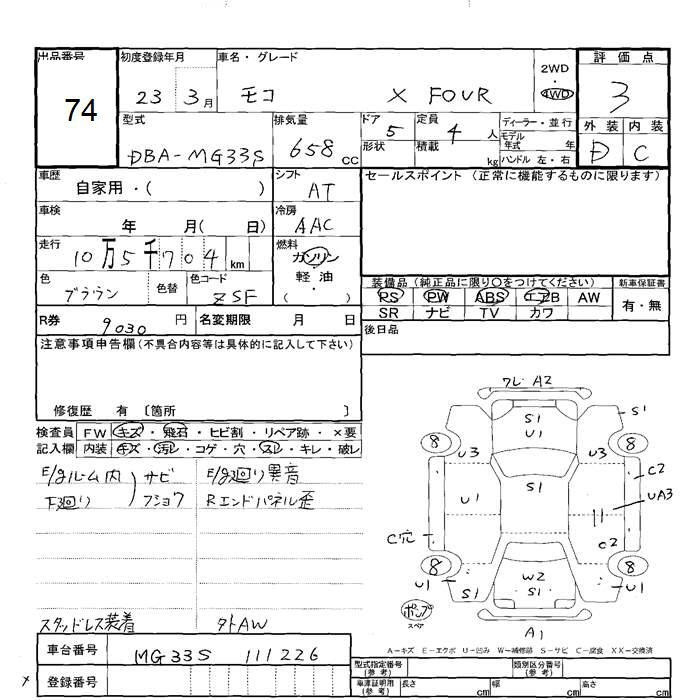 出品番号 初度登録年月 車名・グレード 2WD 評価点
74 23 3月 モコ X FOUR ・ 4WD 3
型式 排気量 ドア 定員 ディーラー・並行 外装 内装
DBA-MG33S 658 CC 5 4 人 モデル年式 年 D C
形状 積載 kg ハンドル 左・右
車歴 自家用・( ) シフト AT セールスポイント (正常に機能するものに限ります)
車検 年 月( 日) 冷房 AAC
走行 10万5千704 km 燃料 ガソリン
軽・油
( )
色 ブラウン 色替 色コード ZSF
装備品 (純正品に限り○をつけてください) 新車保証書
PS PW ABS エアB AW 有・無
SR ナビ TV カワ
R券 9030 円 名変期限 月 日 後日品
注意事項申告欄 (不具合内容等は具体的に記入して下さい)
修復歴 有 〔箇所 〕
検査員 FW キズ・飛石・ヒビ割・リペア跡・×要
記入欄 内装 キズ・汚レ・コゲ・穴・スレ・キレ・破レ
E/gルーム内 サビ E/g廻り異音
下廻り フショク Rエンドパネル歪
スタッドレス装着 夕トAW
車台番号 MG33S 111226
登録番号
ワレ A2
S1 U1 S1
8 8
U3 U3
C2
U1 S1 UA3
C穴 C2
8 8
U1 S1 W2 S1 S1 U1
ポンプ
スペア
A1
A-キズ E-エクボ U-凹み W-補修跡 S-サビ C-腐食 XX-交換済
型式指定番号(参考) 類別区分番号(参考)
車庫証明用(参考) 長さ cm 幅 cm 高さ cm